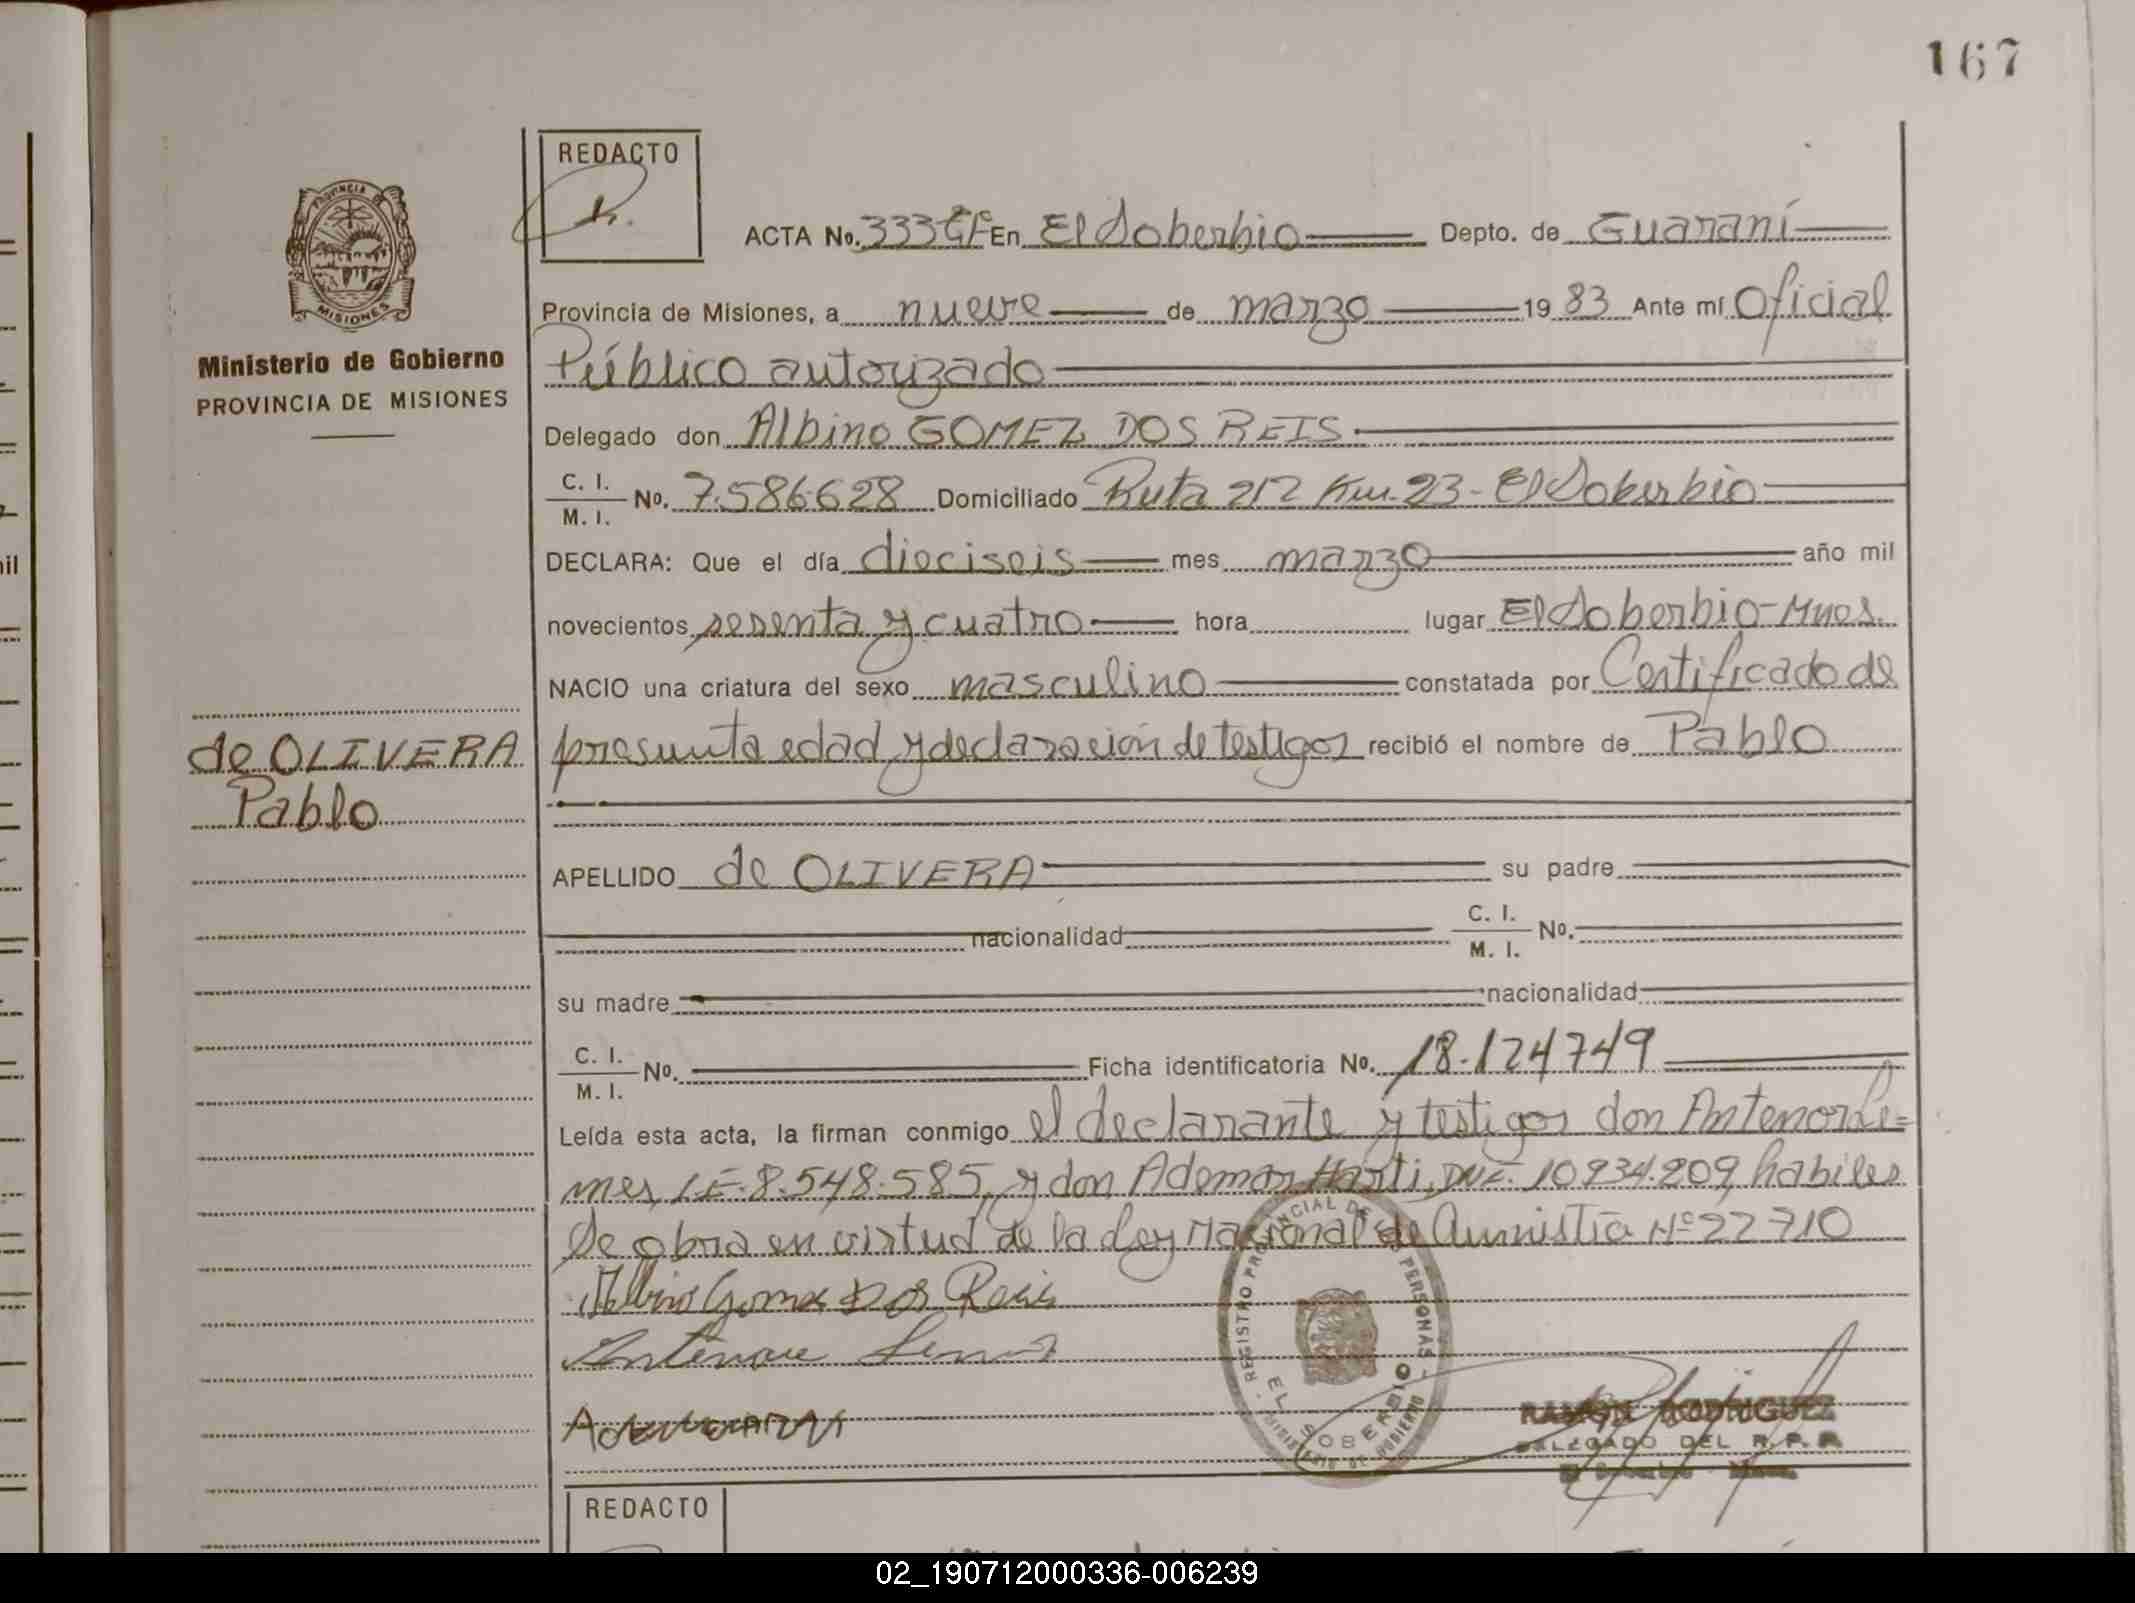 167
REDACTO
PROVINCIA
MISIONES
Ministerio de Gobierno
PROVINCIA DE MISIONES
ACTA No. 333 En El Soberbio Depto. de Guaraní
Provincia de Misiones, a nueve de marzo 1983 Ante mí Oficial
Público autorizado
Delegado don Albino GOMEZ DOS REIS
C. I.
M. I. No. 7.586.628 Domiciliado Ruta 212 Km. 23 - El Soberbio
DECLARA: Que el día dieciseis mes marzo año mil
novecientos sesenta y cuatro hora lugar El Soberbio - Mnes.
NACIO una criatura del sexo masculino constatada por Certificado de
presunta edad y declaración de testigos recibió el nombre de Pablo
de OLIVERA
Pablo
APELLIDO de OLIVERA su padre
nacionalidad C. I.
M. I. No.
su madre nacionalidad
C. I.
M. I. No. Ficha identificatoria No. 18.124749
Leída esta acta, la firman conmigo el declarante y testigos don Antenor Le=
mes, L.E. 8.548.585, y don Ademar Harti, DNI. 10934.209, habiles
De obra en virtud de la Ley Nacional de Amnistia Nº 22710
Albino Gomes Dos Reis
Antenore Lemes
REGISTRO PROVINCIAL DE PERSONAS
EL SOBERBIO
MINISTERIO DE GOBIERNO
RAMON RODRIGUEZ
DELEGADO DEL R. P. P.
El Soberbio - Mnes.
REDACTO
02_190712000336-006239